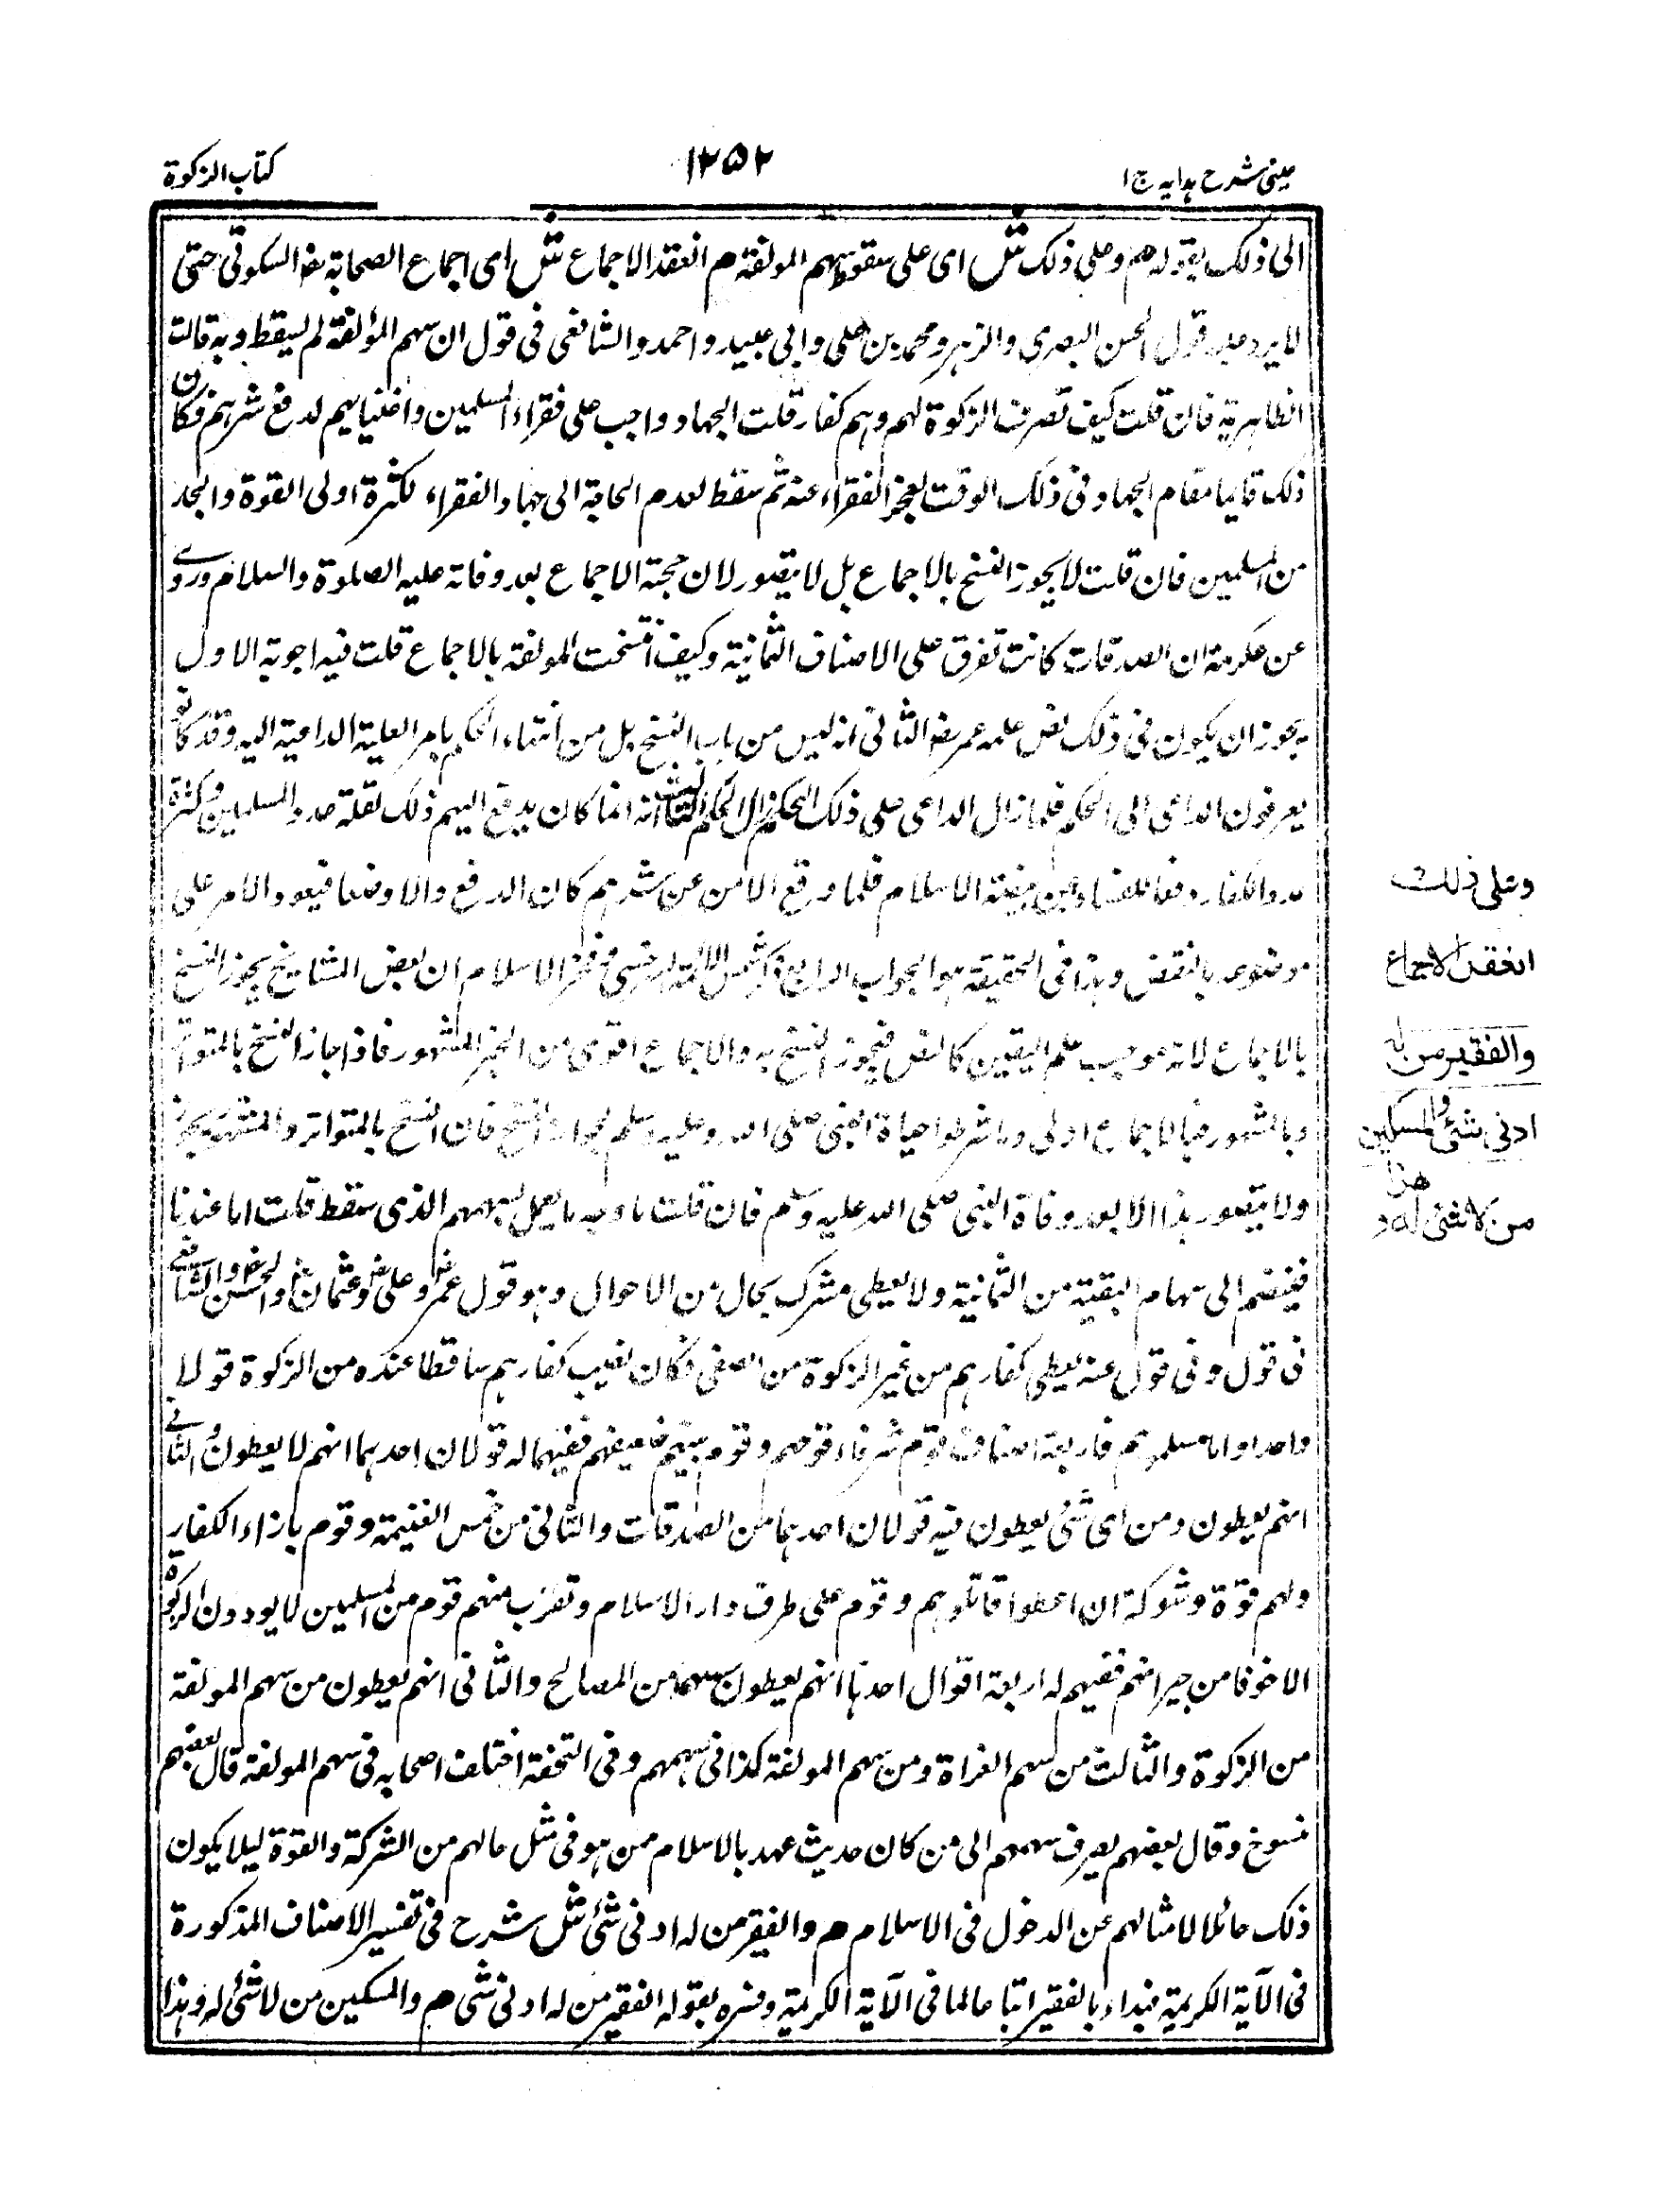 عینی شرح ہدایہ ج۱
۱۲۵۲
کتاب الزکوة
الی ذلک بقوله م وعلی ذلک ش ای علی سقوط سهم المولفة م انعقد الاجماع ش ای اجماع الصحابة رض السکوتی حتی
لا یرد علیه قول الحسن البصری والزهر ومحمد بن علی وابی عبید واحمد والشافعی فی قول ان سهم المؤلفة لم یسقط وبه قالت
الظاهریة فان قلت کیف تصرف الزکوة لهم وهم کفار قلت الجهاد واجب علی فقراء المسلمین واغنیایهم لدفع شرهم فکان
ذلک قایما مقام الجهاد فی ذلک الوقت لعجز الفقراء عنه ثم سقط لعدم الحاجة الی جهاد الفقراء لکثرة اولی القوة والجد
من المسلمین فان قلت لا یجوز النسخ بالاجماع بل لا یتصور لان حجة الاجماع بعد وفاته علیه الصلوة والسلام وروے
عن عکرمة ان الصدقات کانت تفرق علی الاصناف الثمانیة وکیف انتسخت المولفة بالاجماع قلت فیه اجوبة الاول
یجوز ان یکون فی ذلک نص علمه عمر رض الثانی انه لیس من باب النسخ بل من انتهاء الحکم بامر العلیة الداعیة الیه وقد کانوا
یعرفون الداعی الی الحکم فلما زال الداعی علی ذلک الحکم زال الحکم الثالث انه انما کان یدفع الیهم ذلک لقلة عدد المسلمین وکثرة
عدد الکفار دفعا للفساد عن بیضة الاسلام فلما وقع الامن عن شرهم کان الدفع والا وضعا فیعود الامر علی
موضوعه بالنقض وهذا فی الحقیقة هو الجواب الرابع ذکر شمس الائمة السرخسی مع فخر الاسلام ان بعض المشایخ یجوز النسخ
بالاجماع لانه موجب علم الیقین کالنص فیجوز النسخ به والاجماع اقوی من الخبر المشهور فاذا جاز النسخ بالمتواتر
وبالمشهور فبالاجماع اولی وما شرطوا حیاة النبی صلی الله علیه وسلم لجواز النسخ فان النسخ بالمتواتر والمشهور یجوز
ولا یتصور هذا الا بعد وفاة النبی صلی الله علیه وسلم فان قلت ما وجه ما یعمل بسهمهم الذی سقط قلت اما عندنا
فینضم الی سهام البقیة من الثمانیة ولا یعطی مشرک بحال من الاحوال وهو قول عمر رض وعلی رض وعثمان رض والحسن رض والشافعے
فی قول وفی قول عنه یعطی کفارهم من غیر الزکوة من الصفی فکان نصیب کفارهم ساقطا عنده من الزکوة قولا
واحدا واما مسلموهم فاربعة اصناف قوم شرفاء قومهم وقوم نیتهم ضعیفهم ففیهما له قولان احدهما انهم لا یعطون والثانے
انهم یعطون ومن ای شئ یعطون فیه قولان احدهما من الصدقات والثانی من خمس الغنیمة وقوم بازاء الکفار
ولهم قوة وشوکة ان اعطوا قاتلوهم وقوم علی طرف دار الاسلام وتقرب منهم قوم من المسلمین لا یودون الزکوة
الا خوفا من جیرانهم ففیهم له اربعة اقوال احدها انهم یعطون سهما من المصالح والثانی انهم یعطون من سهم المولفة
من الزکوة والثالث من سهم الغزاة ومن سهم المولفة کذا فی سهمهم وفی التحفة اختلف اصحابه فی سهم المولفة قال بعضهم
منسوخ وقال بعضهم یصرف سهمهم الی من کان حدیث عهد بالاسلام ممن هو فی مثل حالهم من الشرکة والقوة لیلا یکون
ذلک حائلا لامثالهم عن الدخول فی الاسلام م والفقیر من له ادنی شئ ش شرح فی تفسیر الاصناف المذکورة
فی الآیة الکریمة فبداء بالفقیر اتباعا لما فی الآیة الکریمة وفسره بقوله الفقیر من له ادنی شی م والمسکین من لا شئ له وهذا
وعلی ذلک
انعقد الاجماع
والفقیر من له
ادنی شئ والمسکین
من لا شئ له وهذا